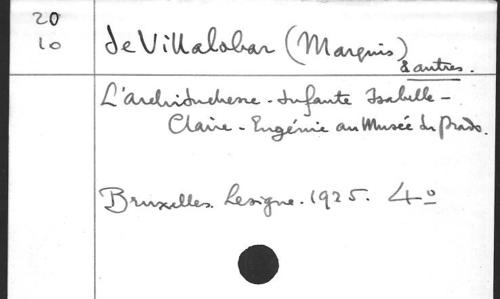 20
10
de Villalobar (Marquis)
& autres.
L'archiduchesse - Infante Isabelle -
Claire - Eugénie au Musée du Prado.
Bruxelles. Lesigne. 1925. 4º